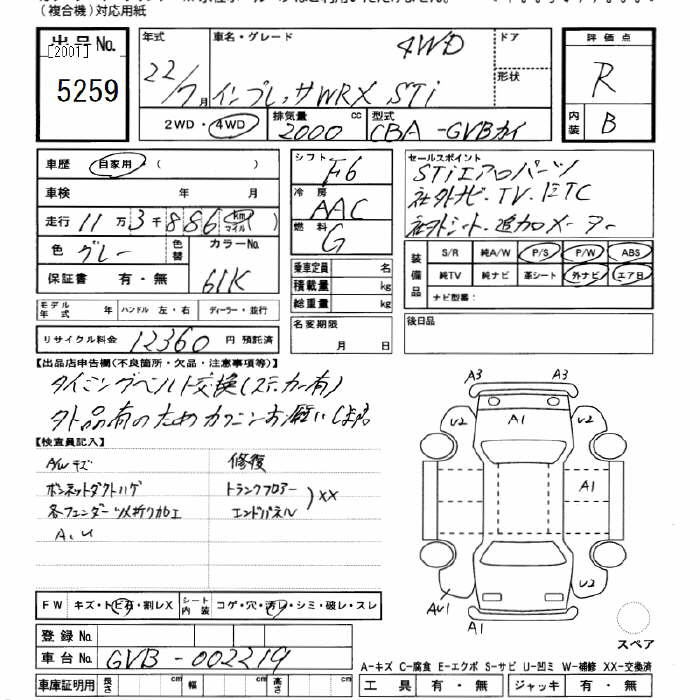 (複合機)対応用紙
出品No.
[200T]
5259
年式
22/7月
車名・グレード
4WD
インプレッサWRX STi
ドア
形状
2WD・4WD
排気量
2000 cc
型式
CBA-GVBカイ
評価点
R
内装
B
車歴
自家用・( )
車検 年 月
走行 11万3千886 (km マイル)
色 グレー
色替
カラーNo.
61K
保証書 有・無
モデル年式 年
ハンドル 左・右
ディーラー・並行
リサイクル料金 12360 円 預託済
シフト
F6
冷房
AAC
燃料
G
乗車定員 名
積載量 kg
総重量 kg
名変期限
月 日
セールスポイント
STiエアロパーツ
社外ナビ・TV・ETC
社外シート・追加メーター
装備品
S/R 純A/W P/S P/W ABS
純TV 純ナビ 革シート 外ナビ エア日
ナビ型番:
後日品
【出品店申告欄(不良箇所・欠品・注意事項等)】
タイミングベルト交換(ステッカー有)
外品有のためカクニンお願いします
【検査員記入】
A/Wキズ
ボンネットダクトハゲ
各フェンダーツメ折り加工
A,U
修復
トランクフロアー
エンドパネル
XX
A3 A3
U2 A1 U2
A1
AU1 U2
A1
スペア
FW キズ・トビ石・割レX
シート内装 コゲ・穴・汚レ・シミ・破レ・スレ
登録No.
車台No. GVB-002219
車庫証明用 長さ cm 幅 cm 高さ cm
A-キズ C-腐食 E-エクボ S-サビ U-凹ミ W-補修 XX-交換済
工具 有・無 ジャッキ 有・無